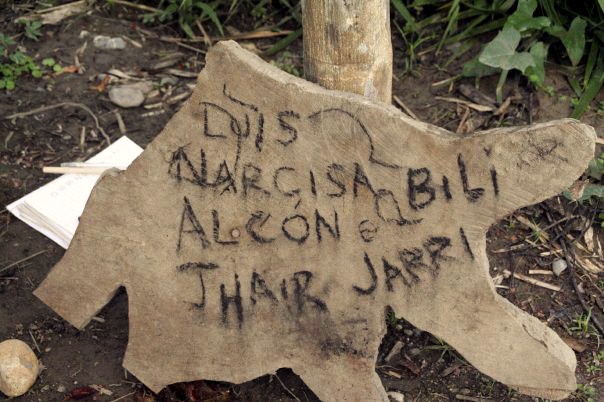 LUIS
NARCISA BILI
ALCÓN
JHAIR JARRI